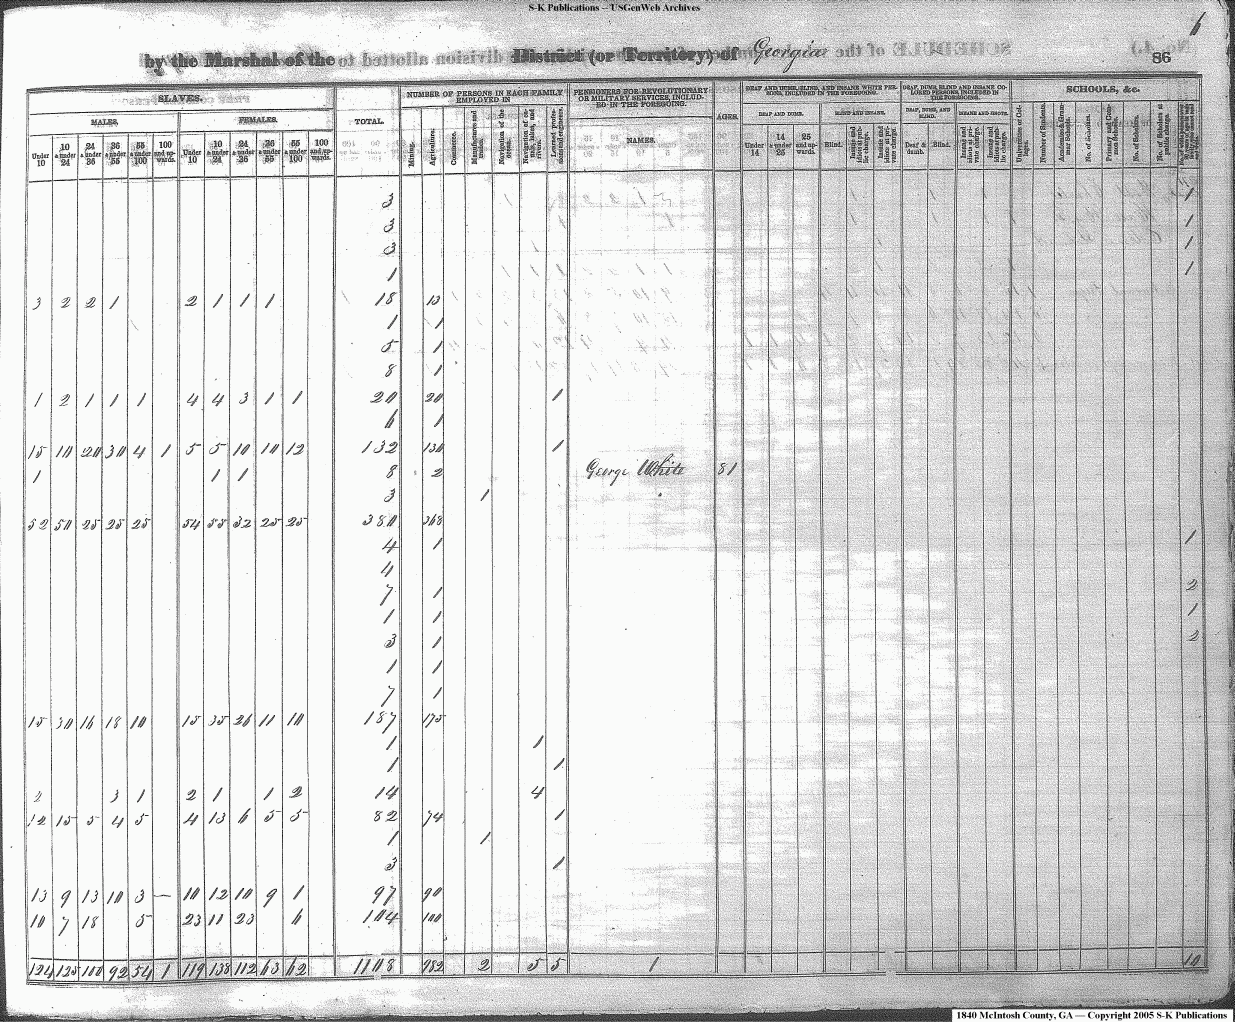 S-K Publications – USGenWeb Archives
by the Marshal of the District (or Territory) of Georgia
86
SLAVES.
TOTAL.
NUMBER OF PERSONS IN EACH FAMILY EMPLOYED IN
PENSIONERS FOR REVOLUTIONARY OR MILITARY SERVICES, INCLUDED IN THE FOREGOING.
AGES.
DEAF AND DUMB, BLIND, AND INSANE WHITE PERSONS, INCLUDED IN THE FOREGOING.
DEAF, DUMB, BLIND AND INSANE COLORED PERSONS, INCLUDED IN THE FOREGOING.
SCHOOLS, &c.
MALES. FEMALES.
NAMES.
DEAF AND DUMB. BLIND AND INSANE. DEAF, DUMB, AND BLIND. INSANE AND IDIOTS.
Under 10 10 & under 24 24 & under 36 36 & under 55 55 & under 100 100 and upwards. Under 10 10 & under 24 24 & under 36 36 & under 55 55 & under 100 100 and upwards.
Mining. Agriculture. Commerce. Manufactures and trades. Navigation of the ocean. Learned professions and engineers.
Under 14 14 & under 25 25 and upwards. Blind. Deaf & dumb. Blind.
Number of Students. No. of Scholars. No. of Scholars. No. of Scholars at public charge.
3 1
3 1
3 1
1 1
3 2 2 1 2 1 1 1 18 13
1 1
5 1
8 1
1 2 1 1 1 4 4 3 1 1 20 20 1
6 1
15 10 20 30 4 1 5 5 10 10 12 132 130 1
1 1 1 8 2 George White 81
3 1
52 50 25 25 25 54 55 32 25 25 380 368
4 1 1
4
7 1 2
1 1 1
3 1 2
1 1
7 1
15 30 16 18 10 15 35 26 11 10 187 175
1 1
1 1
2 3 1 2 1 1 2 14 4
12 15 5 4 5 4 13 6 5 5 82 74 1
1 1
3 1
13 9 13 10 3 — 10 12 10 9 1 97 90
10 7 18 5 23 11 23 6 104 100
124 125 100 92 54 1 119 138 112 63 62 1108 982 2 5 5 1 10
1840 McIntosh County, GA — Copyright 2005 S-K Publications